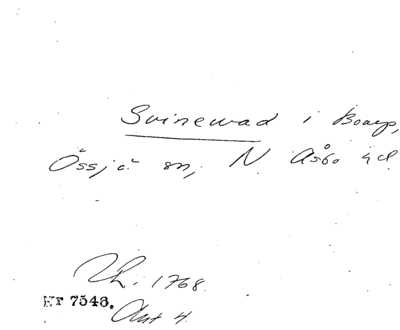 Svinewad i Boarp,
Össjö sn, N Åsbo hd.
Lh. 1768
Nr 7548.
Akt 4.